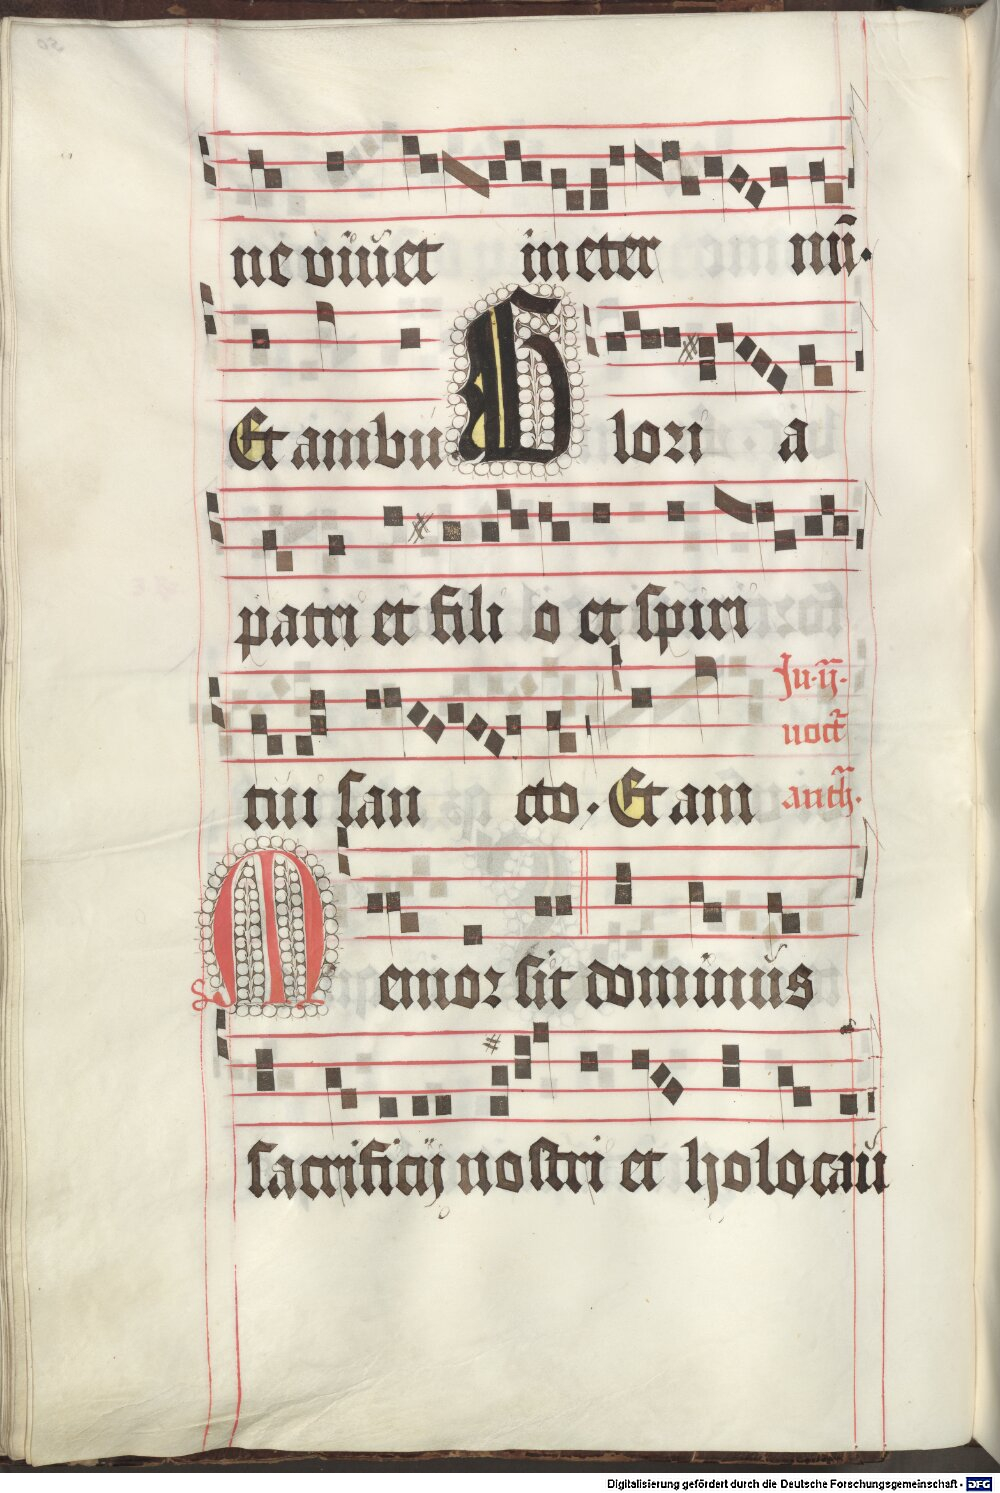 ne viuet in eter nū.
Et ambu. Glori a
patri et fili o et spiri
Ju. ij.
noct̄
tui san cto. Et am
anth̄.
Memor sit dominus
sacrificij nostri et holocau
Digitalisierung gefördert durch die Deutsche Forschungsgemeinschaft - DFG